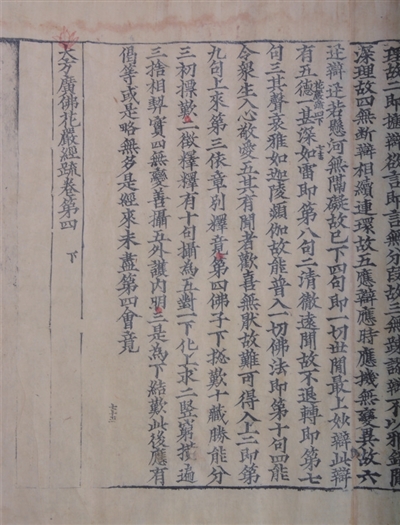 深理故四無断辯相續連環故五應辯應時應機無變異故六
迅辯迅若懸河無閡礙故已下四句即一切世間最上妙辯此辯
有五德一甚深如雷即第八句二清徹遠聞故不退轉即第七
句三其聲哀雅如迦陵頻伽故能普入一切佛法即第十句四能
令衆生入心敬愛五其有聞者歡喜無猒故難可得入上三即第
九句上來第三依章別釋竟第四佛子下㧾歎十藏勝能分
三初㩲歎二徵釋釋有十句攝為五對一下化上求二竪窮撗遍
三捨相契實四無變善攝五外護内明三是為下結歎此後應有
偈等或是略無多是經來未盡第四會竟
大方廣佛花嚴經疏卷第四
下